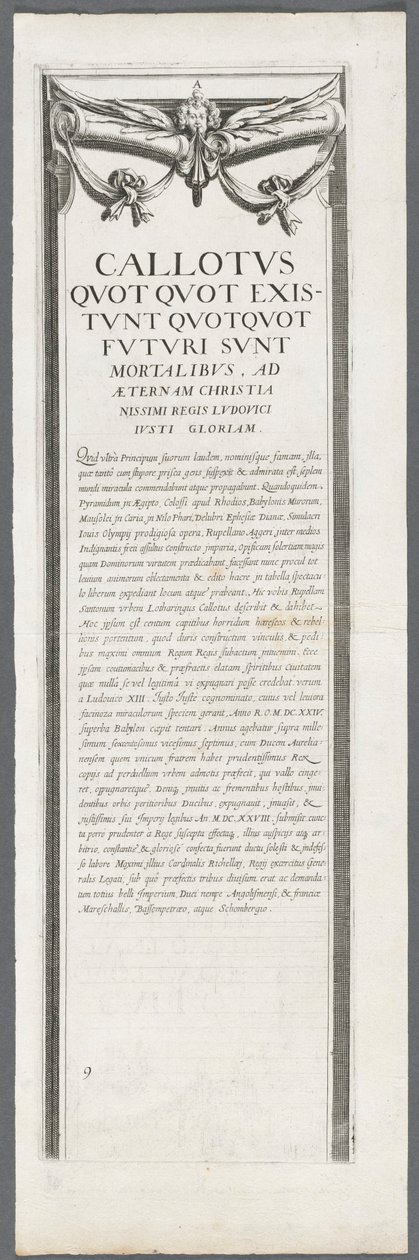 A
CALLOTVS
QVOT QVOT EXIS-
TVNT QVOTQVOT
FVTVRI SVNT
MORTALIBVS, AD
ÆTERNAM CHRISTIA
NISSIMI REGIS LVDOVICI
IVSTI GLORIAM.
Qvid vltrà Principum suorum laudem, nominisque famam, illa,
quæ tantò cum stupore prisca gens suspexit & admirata est, septem
mundi miracula commendabunt atque propagabunt. Quandoquidem
Pyramidum jn Ægipto, Colossi apud Rhodios, Babylonis Murorum,
Mausolei jn Caria, jn Nilo Phari, Delubri Ephesiæ Dianæ, Simulacri
Iouis Olympij prodigiosa opera, Rupellano Aggeri jnter medios
Indignantis freti assultus constructo jmparia, Opificum solertiam magis
quam Dominorum virtutem prædicabant, facessant nunc procul tot
leuium animorum oblectamenta & edito hacce jn tabella spectacu-
lo liberum expediant locum atque præbeant. Hic vobis Rupellam
Santonum vrbem Lotharingus Callotus describit & dat
Hoc jpsum est centum capitibus horridum hæreseos & rebel-
lionis portentum, quod duris constructum vinculis, & pedi-
bus maximi omnium Regum Regis subactum jnuenim. Ecce
jpsam contumacibus & præfractis elatam spiritibus Ciuitatem
quæ nullâ se vel legitimâ vi expugnari posse credebat verum
a Ludouico XIII. Justo Juste cognominato, cuius vel leuiora
facinora miraculorum speciem gerant, Anno R.O.M.DC.XXIV.
superba Babylon caput tentari. Annus agebatur supra mille-
simum, sexcentesimus vicesimus septimus, cum Ducem Aurelia-
nensem quem vnicum fratrem habet prudentissimus Rex
copijs ad perduellium vrbem admotis præfecit, qui vallo cinge-
ret, opugnaretque. Denique jnuitis ac frementibus hostibus, jnui-
dentibus orbis peritioribus Ducibus, expugnauit, jnuasit, &
justissimis sui Imperij legibus An. M.DC.XXVIII. submisit. cunc-
ta porro prudenter à Rege suscepta effectaq, illius auspicijs atq, ar-
bitrio, constantis & gloriose confecta fuerunt ductu solesti & jndefes-
so labore Maximi illius Cardinalis Richellaij, Regij exercitus Gene-
ralis Legati, sub quo præfectis tribus diuisum erat ac demanda-
tum totius belli Imperium, Duci nempe Angolismensi, & franciæ
Mareschallis, Bassompetræo, atque Schombergio.
9